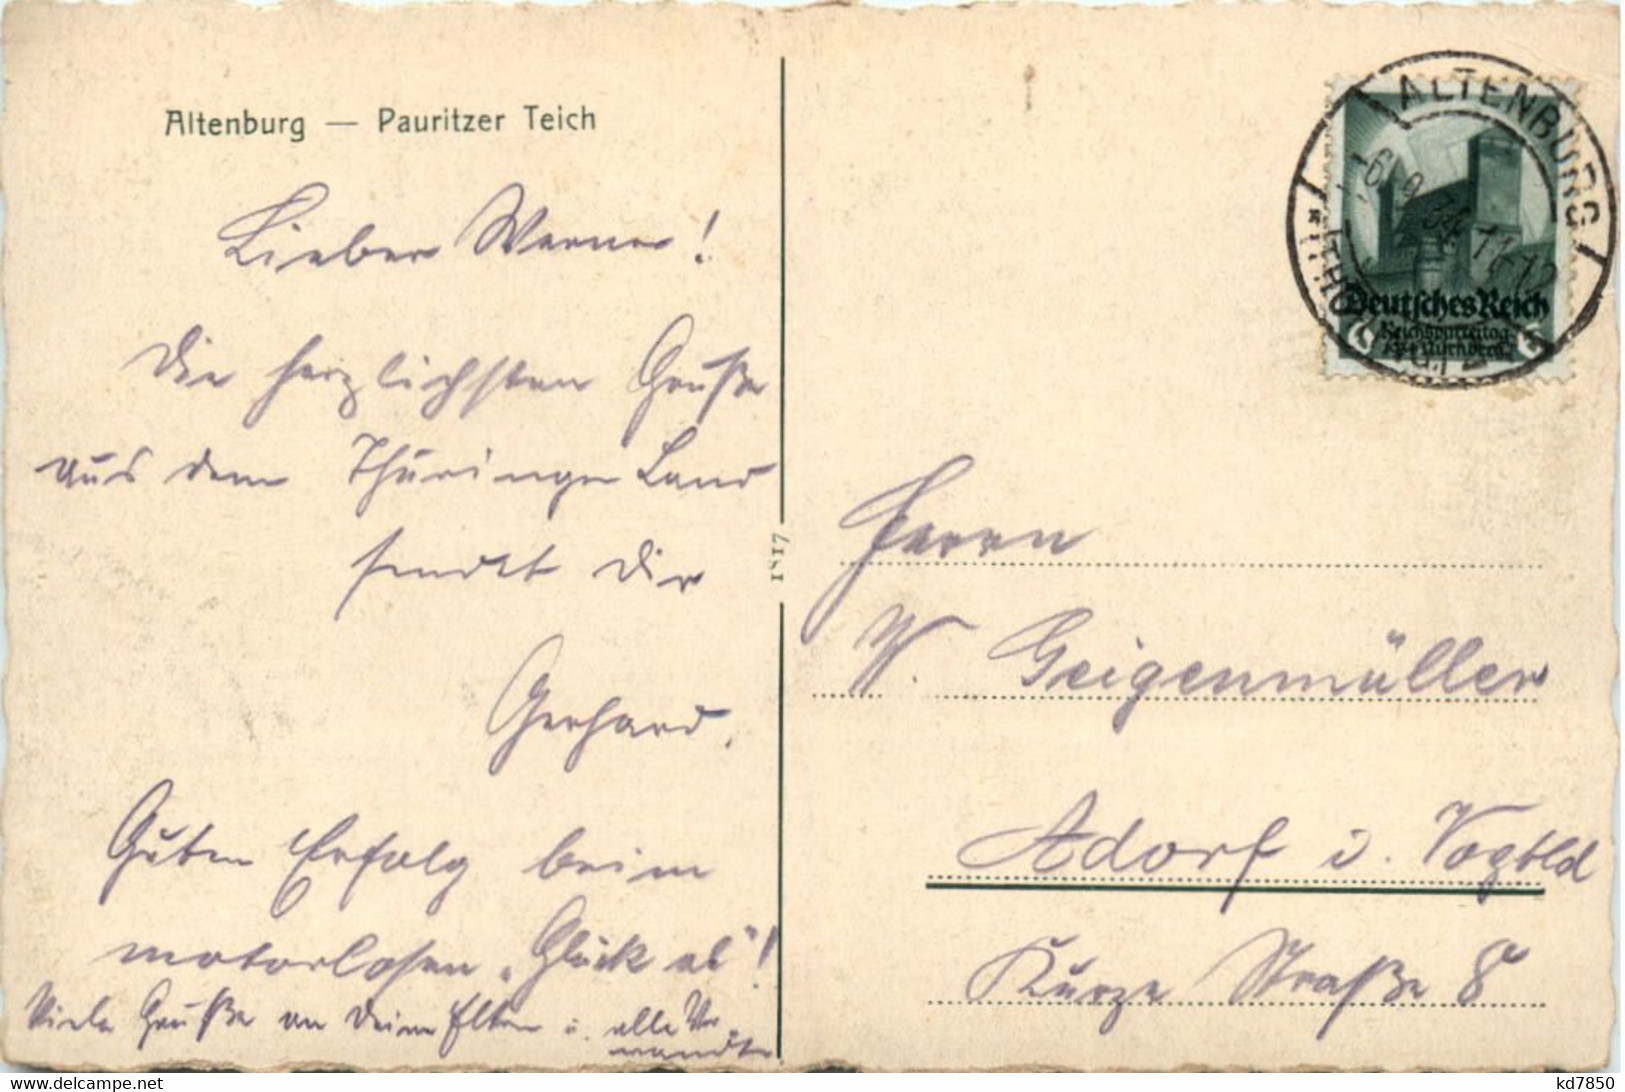 Altenburg — Pauritzer Teich
Lieber Werner!
Die herzlichsten Grüße
aus dem Thüringer Land
sendet Dir
Gerhard.
Guten Erfolg beim
motorlosen „Glück ab"!
Viele Grüße an Deine Eltern u. alle Ver-
wandte
1517
ALTENBURG
(THÜR.)
-6.9.34.11-12
Deutsches Reich
Reichsparteitag
1934 Nürnberg
6 6
Herrn
W. Geigenmüller
Adorf i. Vogtld
Kurze Straße 8
www.delcampe.net
kd7850